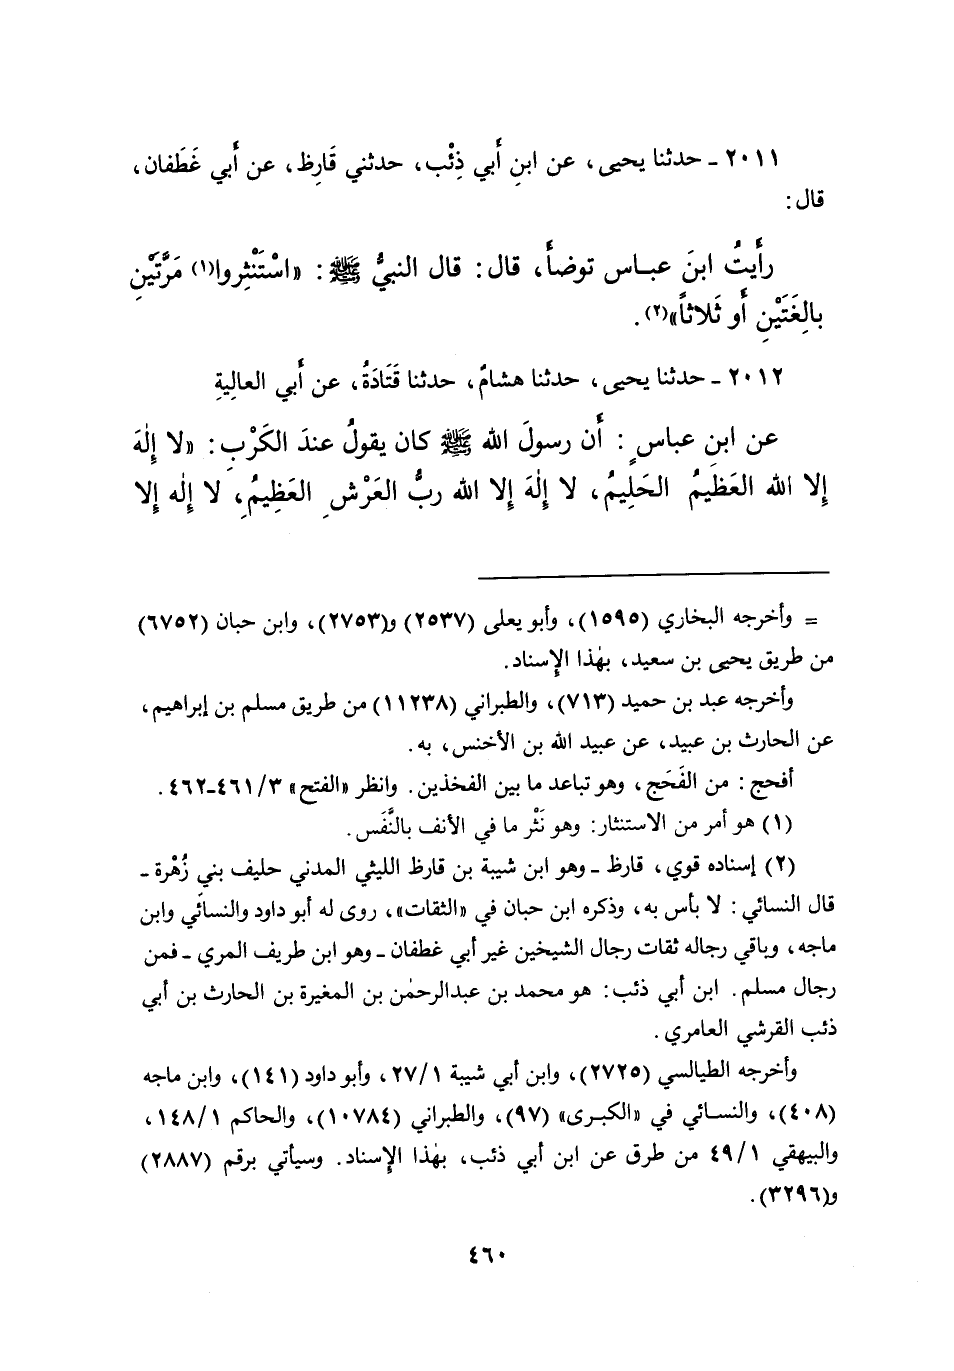 ٢٠١١ ـ حدثنا يحيى، عن ابنِ أَبي ذِئْب، حدثني قَارِظ، عن أَبي غَطَفان،
قال:
رأَيتُ ابنَ عبـاس توضأَ، قال: قال النبيُّ ﷺ: «اسْتَنْثِروا(١) مَرَّتَيْنِ
بالِغَتَيْنِ أَو ثَلاثاً»(٢).
٢٠١٢ ـ حدثنا يحيى، حدثنا هشامٌ، حدثنا قَتَادَةُ، عن أَبي العالِيةِ
عن ابنِ عباسٍ: أَن رسولَ الله ﷺ كان يقولُ عندَ الكَرْبِ: «لا إِلٰهَ
إِلا الله العَظيمُ الحَلِيمُ، لا إِلٰهَ إِلا الله ربُّ العَرْشِ العَظِيمُِ، لا إِلٰه إِلا
= وأخرجه البخاري (١٥٩٥)، وأبو يعلى (٢٥٣٧) و(٢٧٥٣)، وابن حبان (٦٧٥٢)
من طريق يحيى بن سعيد، بهٰذا الإِسناد.
وأخرجه عبد بن حميد (٧١٣)، والطبراني (١١٢٣٨) من طريق مسلم بن إبراهيم،
عن الحارث بن عبيد، عن عبيد الله بن الأخنس، به.
أفحج: من الفَحَج، وهو تباعد ما بين الفخذين. وانظر «الفتح» ٣/٤٦١-٤٦٢.
(١) هو أمر من الاستنثار: وهو نَثْر ما في الأنف بالنَّفَس.
(٢) إسناده قوي، قارظ ـ وهو ابن شيبة بن قارظ الليثي المدني حليف بني زُهْرة ـ
قال النسائي: لا بأس به، وذكره ابن حبان في «الثقات»، روى له أبو داود والنسائي وابن
ماجه، وباقي رجاله ثقات رجال الشيخين غير أبي غطفان ـ وهو ابن طريف المري ـ فمن
رجال مسلم. ابن أبي ذئب: هو محمد بن عبدالرحمٰن بن المغيرة بن الحارث بن أبي
ذئب القرشي العامري.
وأخرجه الطيالسي (٢٧٢٥)، وابن أبي شيبة ١/٢٧، وأبو داود (١٤١)، وابن ماجه
(٤٠٨)، والنسـائي في «الكبـرى» (٩٧)، والطبراني (١٠٧٨٤)، والحاكم ١/١٤٨،
والبيهقي ١/٤٩ من طرق عن ابن أبي ذئب، بهٰذا الإِسناد. وسيأتي برقم (٢٨٨٧)
و(٣٢٩٦).
٤٦٠